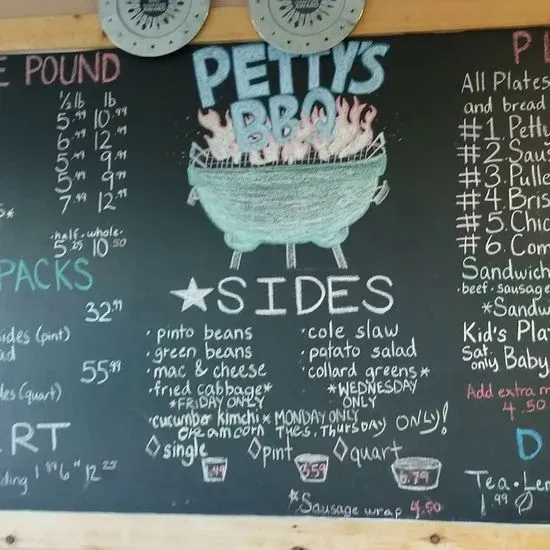 E POUND
½ lb lb
5.99 10.99
6.49 12.99
5.49 9.99
5.49 9.99
7.49 12.99
*
·half· whole·
5.25 10.50
PACKS
32.99
ides (pint)
ad
55.99
des (quart)
RT
PETTY'S
BBQ
★SIDES
· pinto beans
· green beans
· mac & cheese
· fried cabbage*
*FRIDAY ONLY
· cucumber kimchi* MONDAY ONLY
Cream corn Tues. Thursday ONLY!
· cole slaw
· potato salad
· collard greens*
*WEDNESDAY
ONLY
◇single ◇pint ◇quart
.49 3.59 6.79
*Sausage wrap 4.50
PL
All Plates
and bread
#1. Pett
#2. Sau
#3. Pulle
#4. Bris
#5. Chic
#6. Com
Sandwich
·beef·sausage
*Sandw
Kid's Pla
Sat. only Baby
Add extra m
4.50
D
Tea · Le
1.99